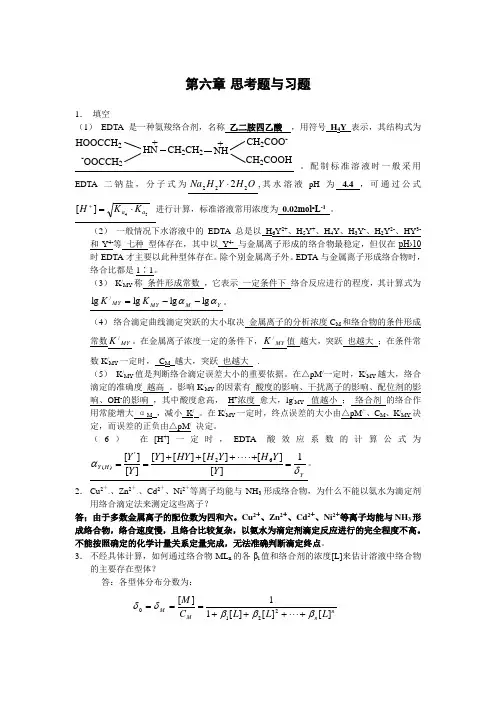 第六章 思考题与习题
1． 填空
（1） EDTA 是一种氨羧络合剂，名称 乙二胺四乙酸 ，用符号 H₄Y 表示，其结构式为
HOOCCH2 CH2COO-
HN + CH2CH2 NH +
-OOCCH2 CH2COOH 。配制标准溶液时一般采用
EDTA 二钠盐，分子式为 Na₂H₂Y·2H₂O ,其水溶液 pH 为 4.4 ，可通过公式
[H⁺] = √(K_{a₄}·K_{a₅}) 进行计算，标准溶液常用浓度为 0.02mol•L⁻¹ 。
（2） 一般情况下水溶液中的 EDTA 总是以 H₆Y²⁺、H₅Y⁺、H₄Y、H₃Y⁻、H₂Y²⁻、HY³⁻
和 Y⁴⁻等 七种 型体存在，其中以 Y⁴⁻ 与金属离子形成的络合物最稳定，但仅在pH›10
时 EDTA 才主要以此种型体存在。除个别金属离子外。EDTA 与金属离子形成络合物时，
络合比都是 1∶1。
（3） K/MY称 条件形成常数 ，它表示 一定条件下 络合反应进行的程度，其计算式为
lg K/MY = lg K_MY − lg α_M − lg α_Y 。
（4）络合滴定曲线滴定突跃的大小取决 金属离子的分析浓度 C_M 和络合物的条件形成
常数 K/MY 。在金属离子浓度一定的条件下，K/MY 值 越大，突跃 也越大 ；在条件常
数 K/MY 一定时， C_M 越大，突跃 也越大 .
（5） K/MY 值是判断络合滴定误差大小的重要依据。在△pM/一定时，K/MY 越大，络合
滴定的准确度 越高 。影响 K/MY 的因素有 酸度的影响、干扰离子的影响、配位剂的影
响、OH⁻的影响 ，其中酸度愈高， H⁺浓度 愈大，lg/MY 值越小 ； 络合剂 的络合作
用常能增大 α_M ，减小 K/ 。在 K/MY 一定时，终点误差的大小由△pM/ 、C_M、K/MY 决
定，而误差的正负由△pM/ 决定。
（6） 在[H⁺]一定时，EDTA 酸效应系数的计算公式为
α_{Y(H)} = [Y/]/[Y] = ([Y]+[HY]+[H₂Y]+‥‥+[H₆Y])/[Y] = 1/δ_Y 。
2． Cu²⁺、Zn²⁺、Cd²⁺、Ni²⁺等离子均能与 NH₃ 形成络合物，为什么不能以氨水为滴定剂
用络合滴定法来测定这些离子？
答：由于多数金属离子的配位数为四和六。Cu²⁺、Zn²⁺、Cd²⁺、Ni²⁺等离子均能与 NH₃ 形
成络合物，络合速度慢，且络合比较复杂，以氨水为滴定剂滴定反应进行的完全程度不高。
不能按照确定的化学计量关系定量完成，无法准确判断滴定终点。
3． 不经具体计算，如何通过络合物 MLₙ 的各 βᵢ 值和络合剂的浓度[L]来估计溶液中络合物
的主要存在型体？
答：各型体分布分数为：
δ₀ = δ_M = [M]/C_M = 1/(1 + β₁[L] + β₂[L]² + ⋯ + βₙ[L]ⁿ)